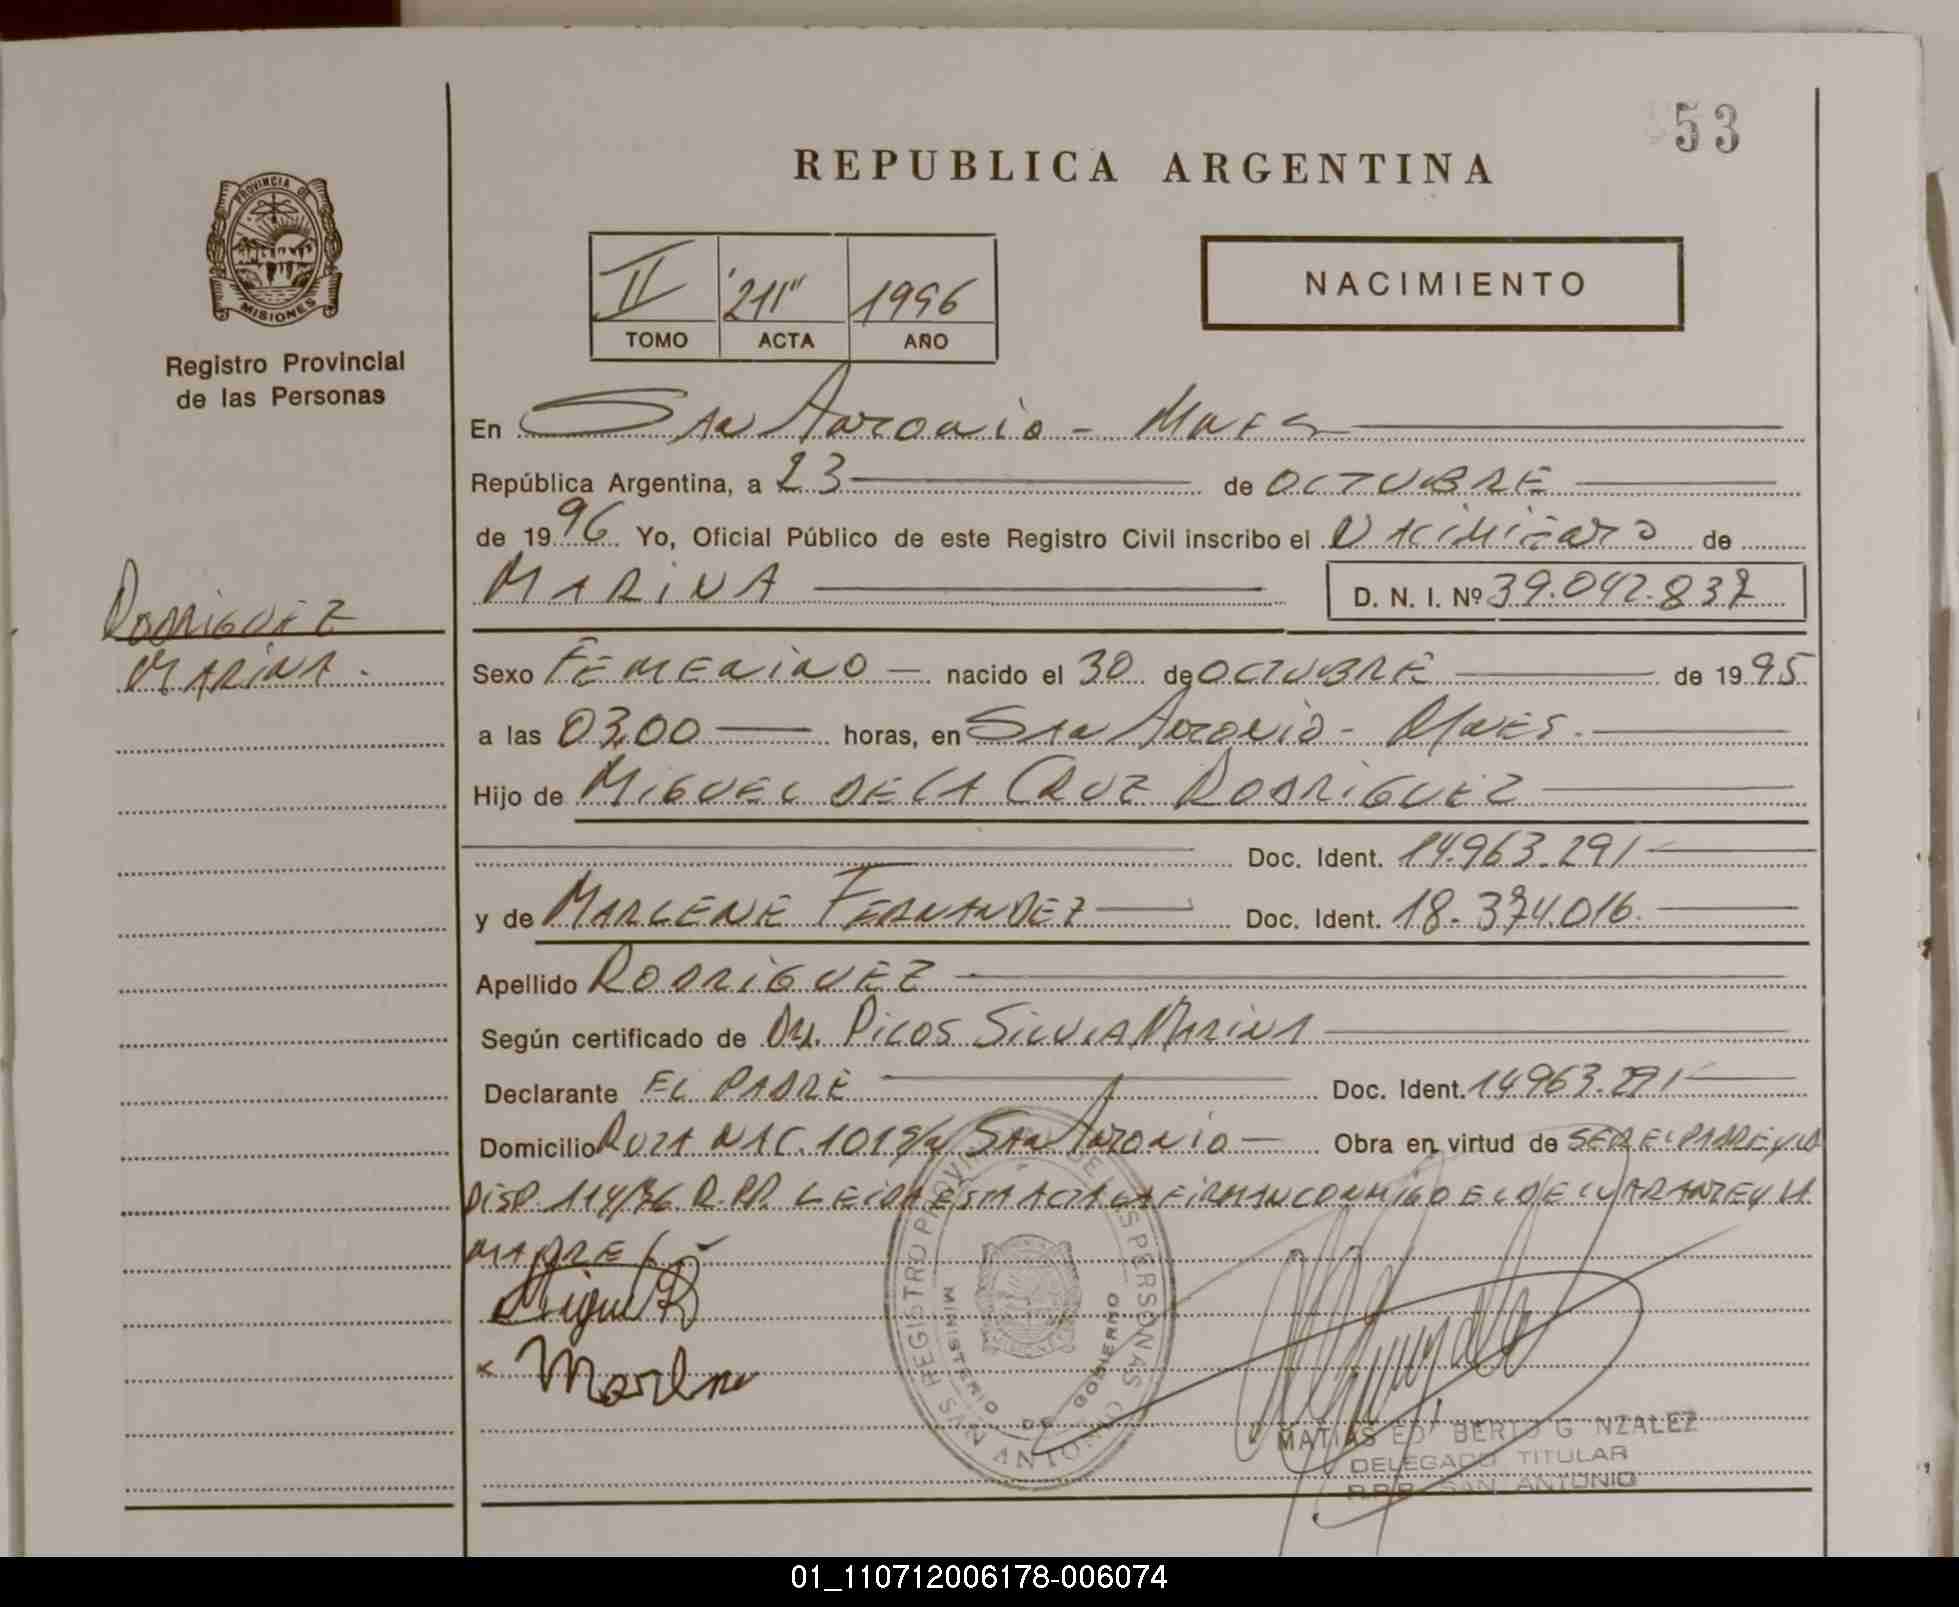 53
REPUBLICA ARGENTINA
PROVINCIA DE
MISIONES
Registro Provincial
de las Personas
II "211" 1996
TOMO ACTA AÑO
NACIMIENTO
En San Antonio - Mnes
República Argentina, a 23 de OCTUBRE
de 1996 Yo, Oficial Público de este Registro Civil inscribo el Nacimiento de
MARINA D. N. I. Nº 39.042.837
RODRIGUEZ
MARINA.
Sexo FEMENINO nacido el 30 de OCTUBRE de 1995
a las 03,00 horas, en San Antonio - Mnes.
Hijo de MIGUEL DE LA CRUZ RODRIGUEZ
Doc. Ident. 14.963.291
y de MARLENE FERNANDEZ Doc. Ident. 18.374.016.
Apellido RODRIGUEZ
Según certificado de Dra. PICOS SILVIA MARINA
Declarante EL PADRE Doc. Ident. 14963.291
Domicilio RUTA NAC. 101 S/n San Antonio Obra en virtud de SER EL PADRE y LA
DISP. 114/76 R.PP. LEIDA ESTA ACTA LA FIRMAN CONMIGO EL DECLARANTE y LA
MADRE
Miguel R
x Marlene
REGISTRO PROVINCIAL DE LAS PERSONAS
MINISTERIO DE GOBIERNO
SAN ANTONIO
MATIAS ED BERTO G NZALEZ
DELEGADO TITULAR
R.P.P. SAN ANTONIO
01_110712006178-006074